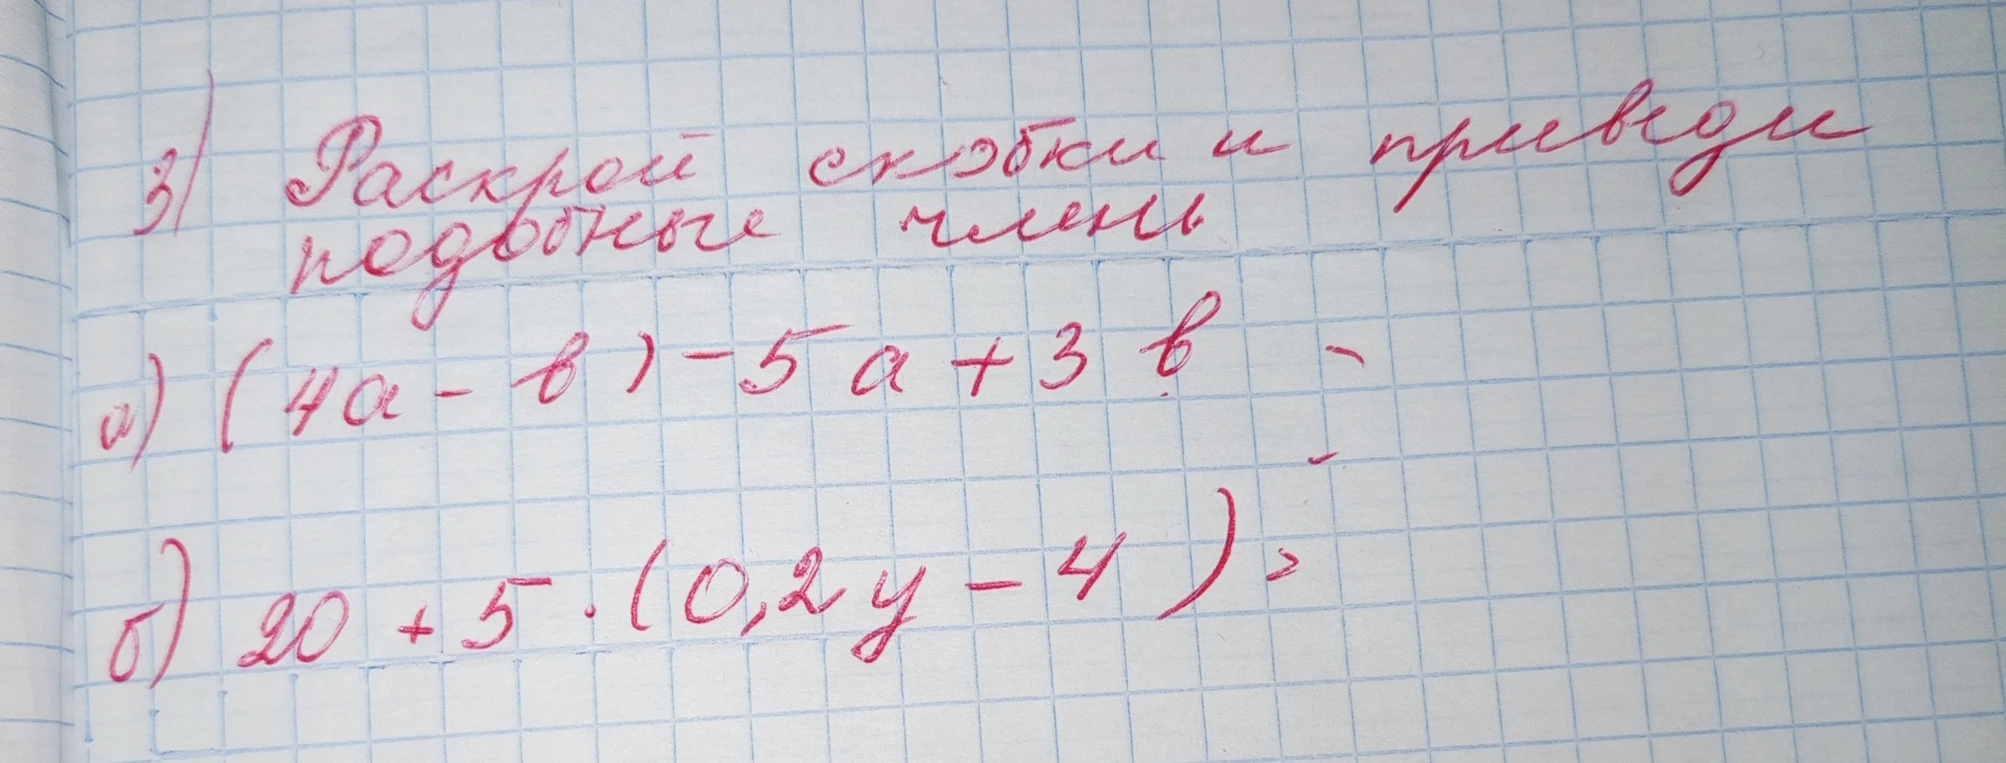 3) Раскрой скобки и приведи
подобные члены
а) (4а - в) - 5а + 3в =
б) 20 + 5 · (0,2у - 4) =